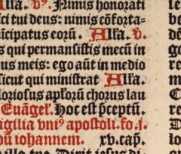 Alľa. v̾. Nimis honorati
ici tui deus: nimis cōforta-
icipatus eorū. Alľa. v̾.
qui permansistis mecū in
us meis: ego aūt in medio
sicut qui ministrat Alľa.
loriosus apľorū chorus lau
Euāgeľ. Hoc est p̄ceptū.
igilia vniꝰ apostoli. fo. i.
dū iohannem. xv. cap.